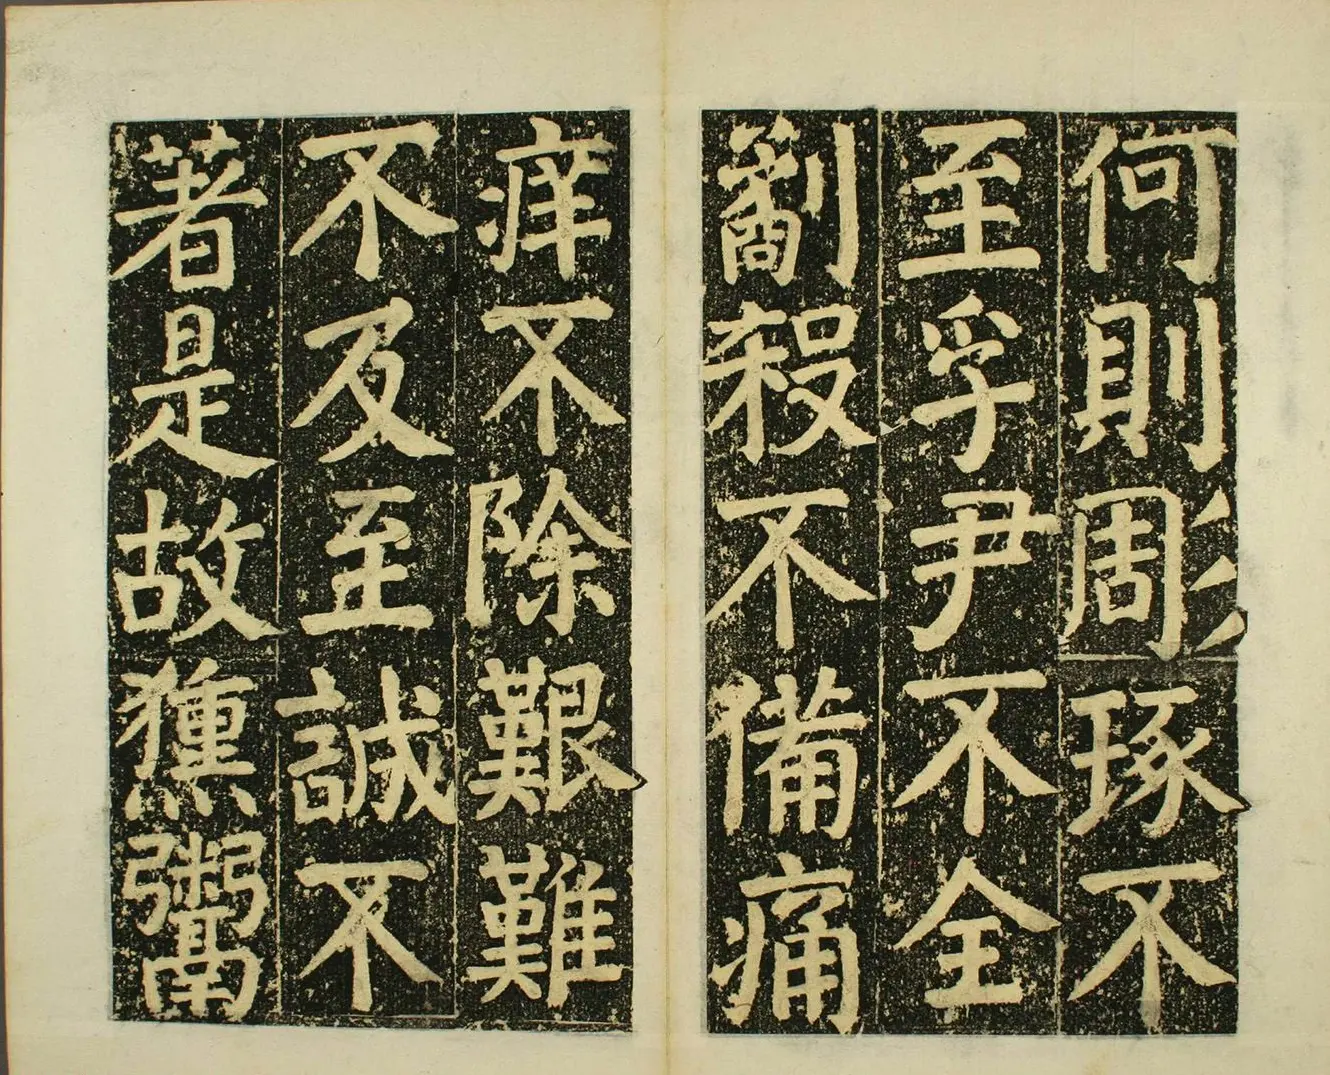 何則彫琢不
至孚尹不全
劀殺不備痛
痒不除艱難
不及至誠不
著是故獯鬻